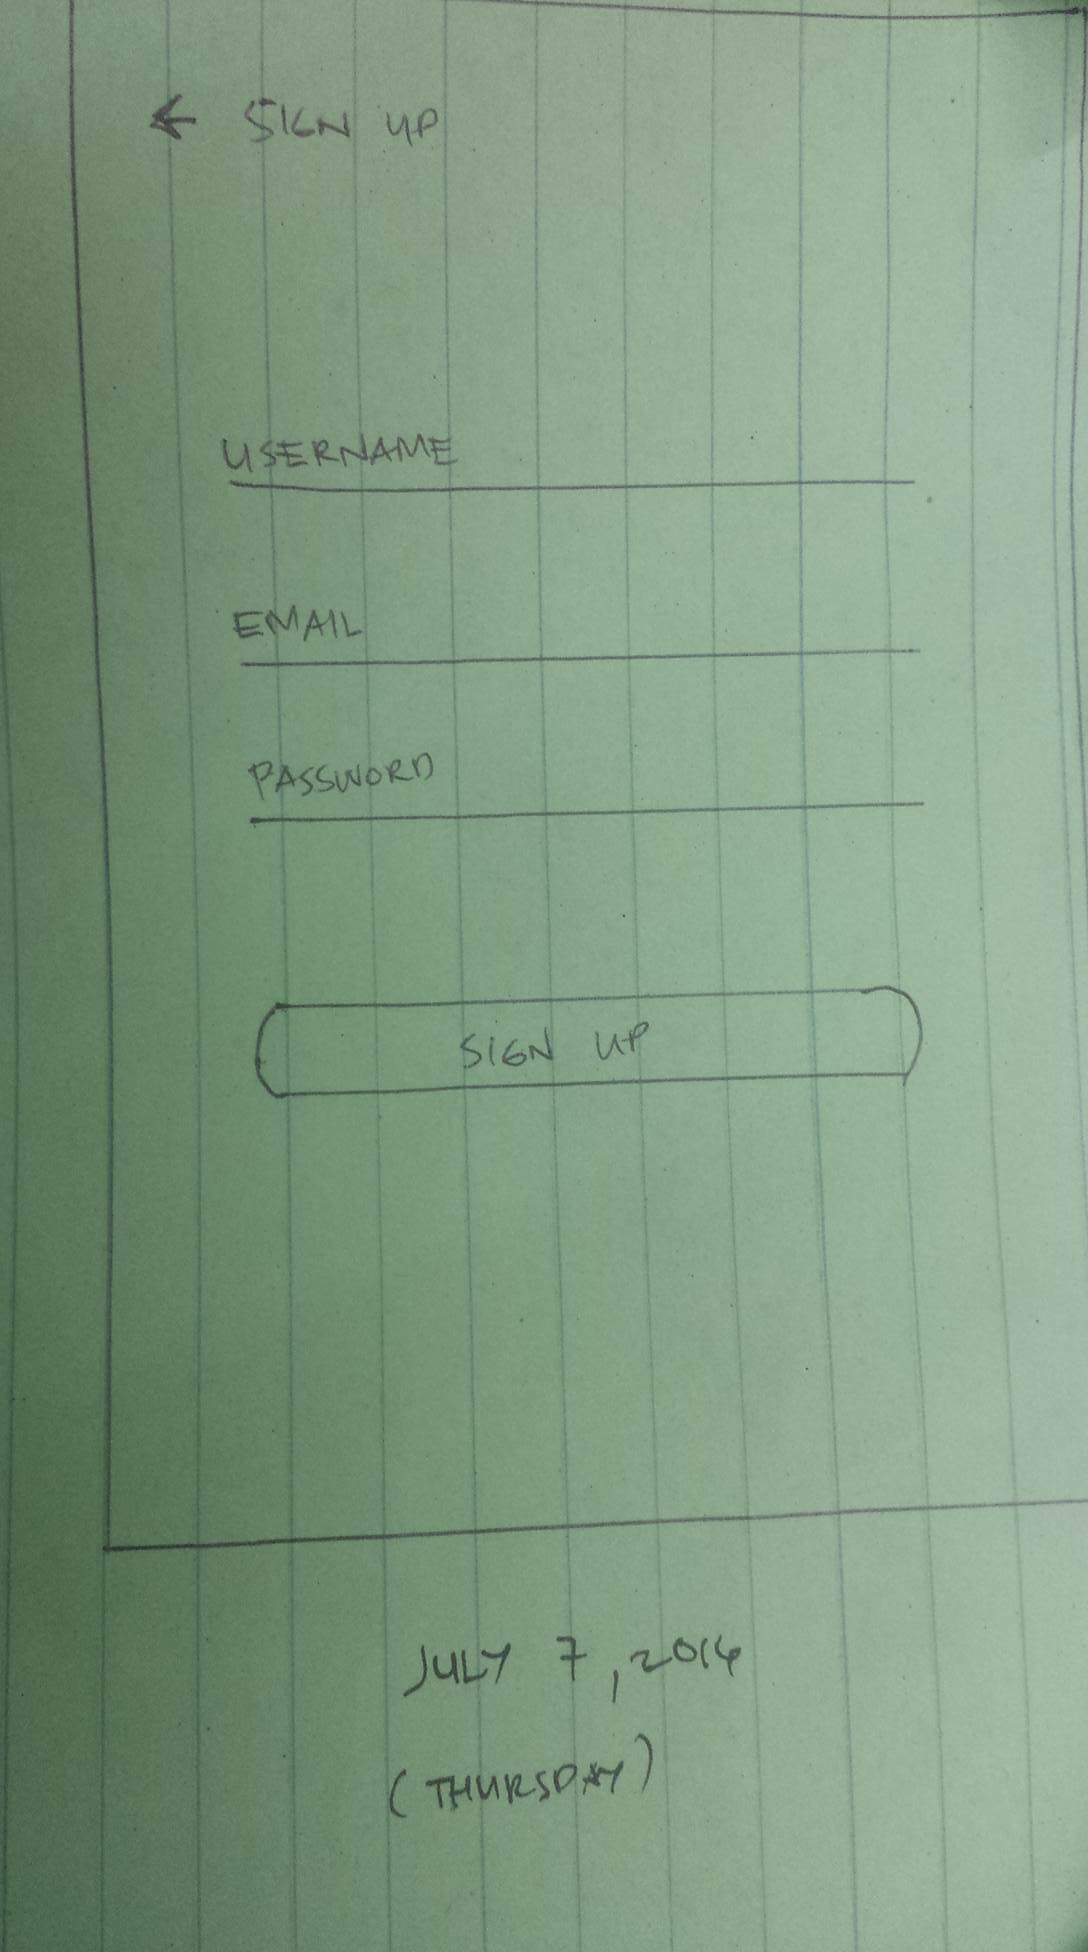 ← SIGN UP
USERNAME
EMAIL
PASSWORD
SIGN UP
JULY 7, 2016
(THURSDAY)